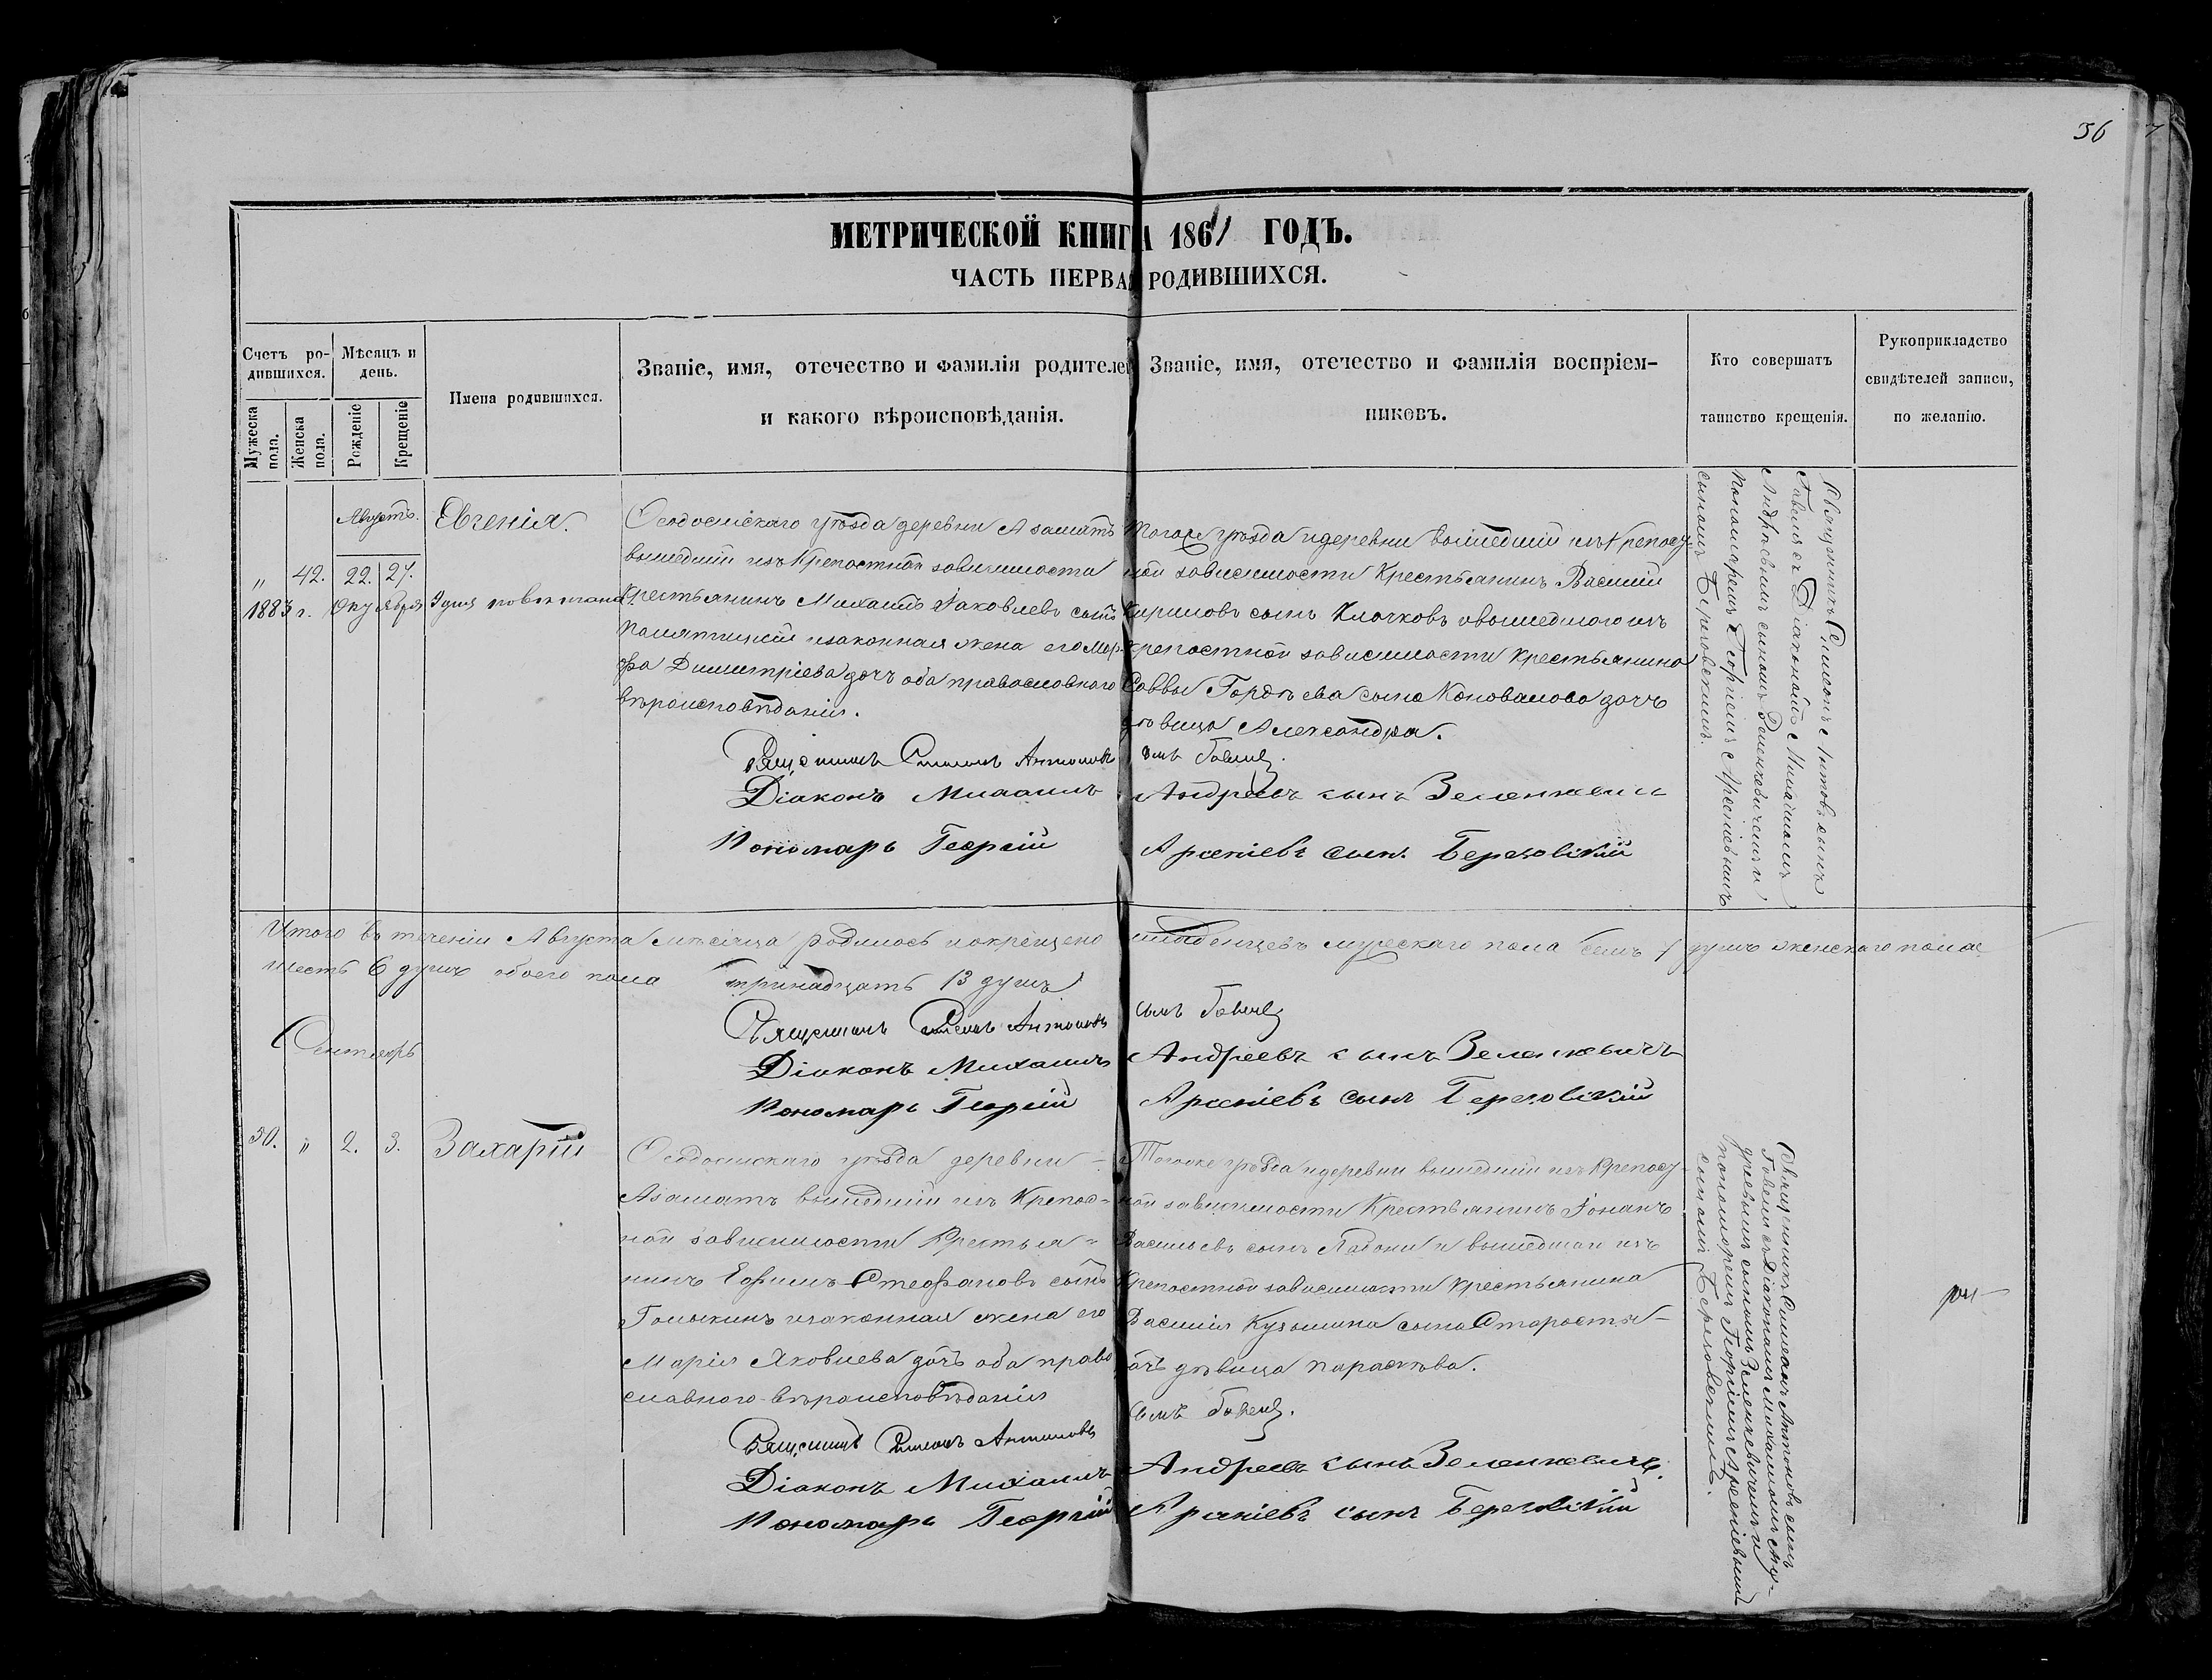 36
МЕТРИЧЕСКОЙ КНИГИ 1861 ГОДЪ.
ЧАСТЬ ПЕРВАЯ РОДИВШИХСЯ.
Счетъ ро-
дившихся.
Мужеска пола.
Женска пола.
Мѣсяцъ и
день.
Рожденіе
Крещеніе
Имена родившихся.
Званіе, имя, отечество и фамилія родителей
и какого вѣроисповѣданія.
Званіе, имя, отечество и фамилія воспріем-
никовъ.
Кто совершатъ
таинство крещенія.
Рукоприкладство
свидѣтелей записи,
по желанію.
Августъ.
„ 42. 22. 27.
Евгенія.
1883 г. Октября
Ѳеодосійскаго уѣзда деревни Азаматъ
вышедшій изъ крепостной зависимости
крестьянинъ Михаилъ Іаковлевъ сынъ
изаконная жена его Мар-
фа Димитріева дочь оба православнаго
вѣроисповѣданія.
Тогоже уѣзда идеревни вышедшій изъ крепост-
ной зависимости крестьянинъ Василій
Кириловъ сынъ Клочковъ ивышедшаго изъ
крепостной зависимости крестьянина
Саввы Гордѣева сына Коновалова дочь
дѣвица Александра.
Священникъ Симеонъ Антоновъ сынъ
Діаконъ Михаилъ Андреевъ сынъ Зеленкевичъ
Пономарь Георгій Арсеніевъ сынъ Березовскій
Священникъ Симеонъ Антоновъ сынъ
съ Діакономъ Михаиломъ
Андреевымъ сыномъ Зеленкевичемъ и
пономаремъ Георгіемъ Арсеніевымъ
сыномъ Березовскимъ.
Итого въ теченіи Августа мѣсяца родилось иокрещено младенцевъ мужескаго пола семь 7 душъ женскаго пола
шесть 6 душъ обоего пола тринадцать 13 душъ
Священникъ Симеонъ Антоновъ сынъ
Діаконъ Михаилъ Андреевъ сынъ Зеленкевичъ
Пономарь Георгій Арсеніевъ сынъ Березовскій
Сентябрь
50. „ 2. 3.
Захарій
Ѳеодосійскаго уѣзда деревни
Азаматъ вышедшій изъ крепост-
ной зависимости крестья-
нинъ Ефимъ Стефановъ сынъ
Голыкинъ изаконная жена его
Марія Яковлева дочь оба право
славнаго вѣроисповѣданія
Тогоже уѣзда идеревни вышедшій изъ крепост-
ной зависимости крестьянинъ Іоанъ
Васильевъ сынъ и вышедшаго изъ
крепостной зависимости крестьянина
Василія Кузьмина сына
дочь дѣвица Параскева.
Священникъ Симеонъ Антоновъ сынъ
Діаконъ Михаилъ Андреевъ сынъ Зеленкевичъ.
Пономарь Георгій Арсеніевъ сынъ Березовскій
Священникъ Симеонъ Антоновъ сынъ
съ Діакономъ Михаиломъ Ан-
дреевымъ сыномъ Зеленкевичемъ и
пономаремъ Георгіемъ Арсеніевымъ
сыномъ Березовскимъ.